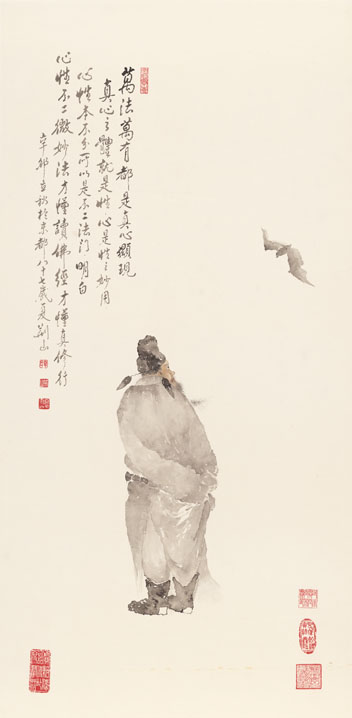 萬法萬有都是真心顯現
真心之體就是性心是性之妙用
心性本不分所以是不二法門明白
心性不二微妙法才懂讀佛經才懂真修行
辛卯立秋於京都八十七歲夏荊山